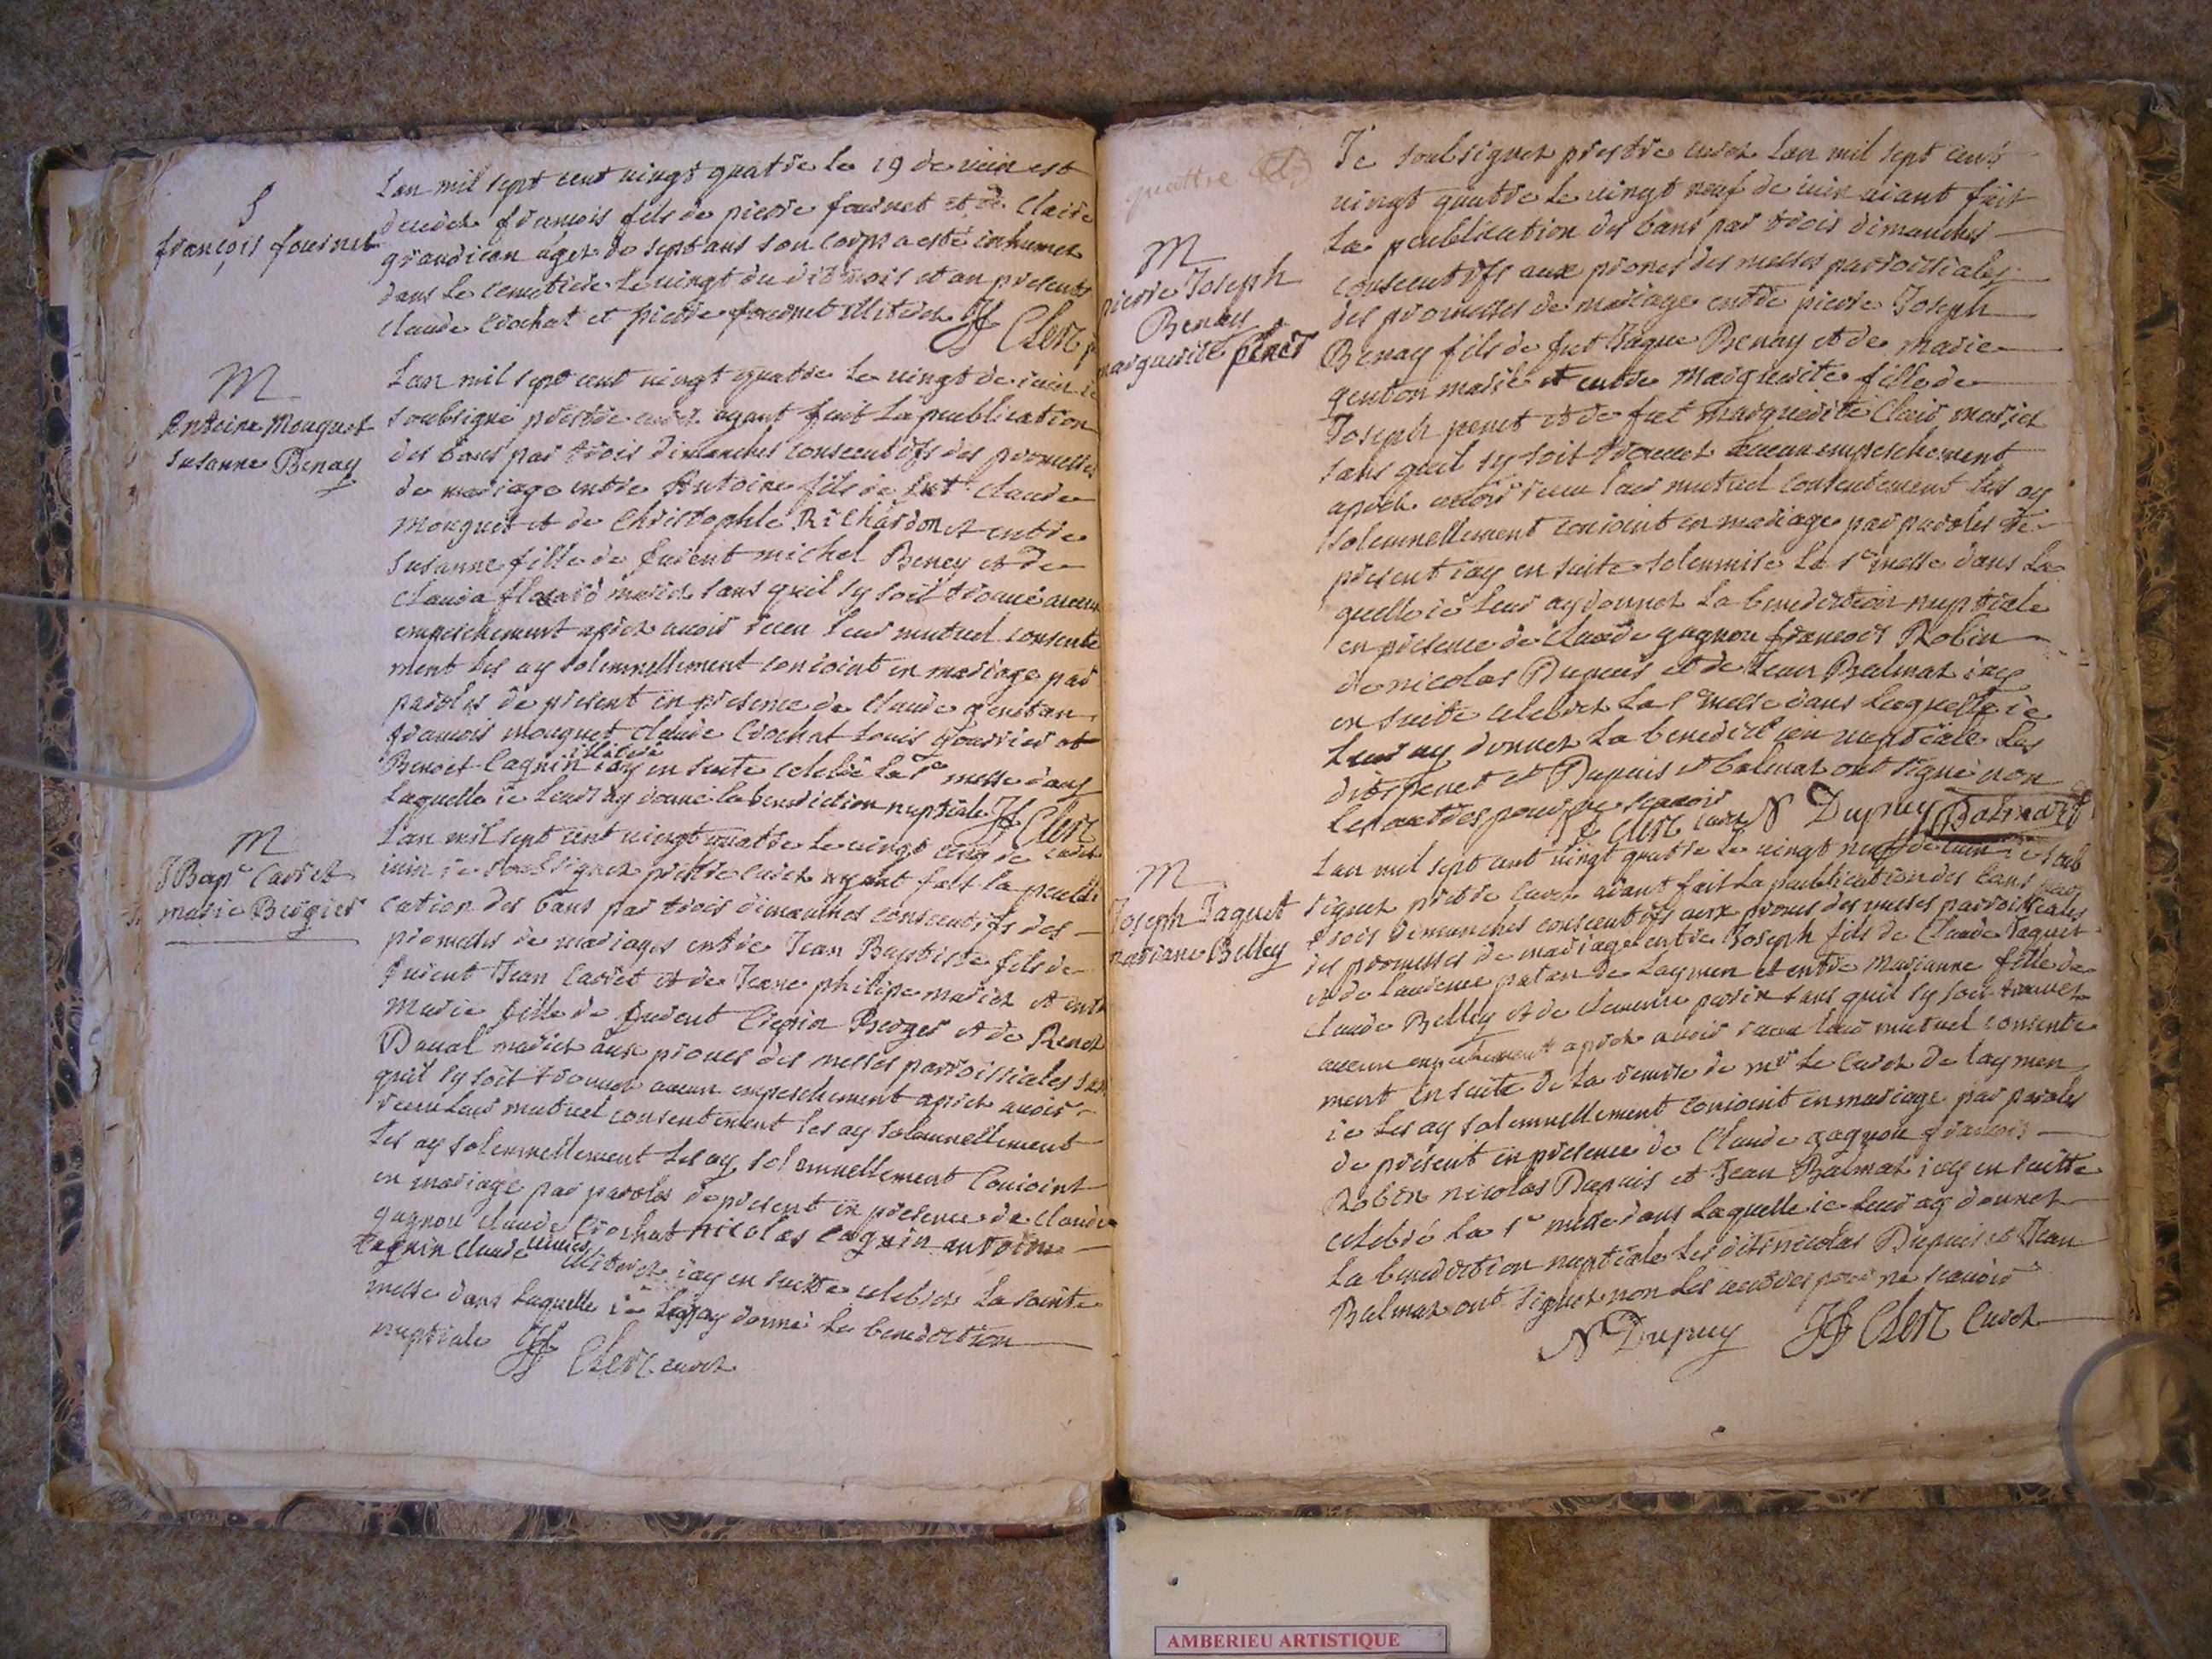 S
françois fournet
Lan mil sept cent vingt quatre le 19 de iuin est
decedez francois fils de pierre fournet et de Claire
grandican agez de sept ans son corps a esté inhumez
dans le cemetiere le vingt du dit mois et an presents
Claude Crochat et pierre fournet illiterez JF Clerc
M
Antoine Mouguet
susanne Benay
Lan mil sept cent vingt quatre le vingt de iuin ie
soubsigné prestre curez ayant fait la publication
des bans par trois dimanches consecutifs des promesses
de mariage entre Antoine fils de fut Claude
Mouguet et de Christophle Richardon et entre
susanne fille de furent michel Beney et de
Clauda mariez sans quil sy soit trouué aucun
empeschement aprez auoir receu leur mutuel consente
ment les ay solemnellement conioint en mariage par
paroles de present en presence de Claude genetan
francois mouguet Claude Crochat Louis et
Benoit Cagnin illiterez iay en suite celebré la Ste messe dans
Laquelle ie leur ay donné la benediction nuptiale JF Clerc
curez
M
J Bapte Carret
marie Bergier
Lan mil sept cent vingt quatre le vingt cinq de
iuin ie soubsignez prestre curez ayant fait la publi
cation des bans par trois dimanches consecutifs des
promesses de mariages entre Jean Baptiste fils de
furent Jean Carret et de Jeane philipe mariez et entre
Marie fille de furent Crepin Berger et de Renee
Daual mariez aux prones des messes parroissiales sans
quil sy soit trouuez aucun empeschement aprez auoir
receu leur mutuel consentement les ay solemnellement
les ay solemnellement les ay solemnellement Conioint
en mariage par paroles de present en presence de Claude
gagnon Claude Crochat nicolas Cagnin antoine
Cagnin Claude illiterez iay en suitte celebrez la sainte
messe dans laquelle ie leur ay donné la benediction
nuptiale JF Clerc curez
quattre
M
pierre Joseph
Benay
marguerite penet
Je soubsignez prestre curez Lan mil sept cens
vingt quatre le vingt neuf de iuin aiant fait
La publication des bans par trois dimanches
consecutifs aux prones des messes parroissiales
des promesses de mariage entre pierre Joseph
Benay fils de fut Jaque Benay et de marie
genton mariez et entre Marguerite fille de
Joseph penet et de fut marguerite Clair mariez
sans quil sy soit trouuez aucun empeschement
aprez auoir receu leur mutuel consentement les ay
solemnellement conioint en mariage par paroles de
present iay en suite solemnise la Ste messe dans la
quelle ie leur ay donnez la benediction nuptiale
en presence de Claude gagnon francois Robin
de nicolas Dupuis et de Jean Balmaz iay
en suite celebrez la Ste messe dans laquelle ie
leur ay donnez la benediction nuptiale les
dits penet et Dupuis et balmaz ont signé non
les autres pour ne scauoir
JF Clerc curez N Dupuy Balmaz
M
Joseph Jaquet
mariane Belley
Lan mil sept cent vingt quatre le vingt neuf de iuin ie soub
signez pretre curez aiant fait la publication des bans par
trois dimanches consecutifs aux prones des messes parroissiales
des promesses de mariage entre Joseph fils de Claude Jaquet
et de laurence patan de laymen et entre Marianne fille de
Claude Belley et de Clemence parin sans quil sy soit trouuez
aucun empechement aprez auoir receu leur mutuel consente
ment en suite de la remise de mr le curez de laymen
ie les ay solemnellement conioint en mariage par paroles
de present en presence de Claude gagnon francois
Robin nicolas Dupuis et Jean Balmaz iay en suitte
celebré la Ste messe dans laquelle ie leur ay donnez
la benediction nuptiale les dits nicolas Dupuis et Jean
Balmaz ont signez non les autres pour ne scauoir
N Dupuy JF Clerc Curez
AMBERIEU ARTISTIQUE